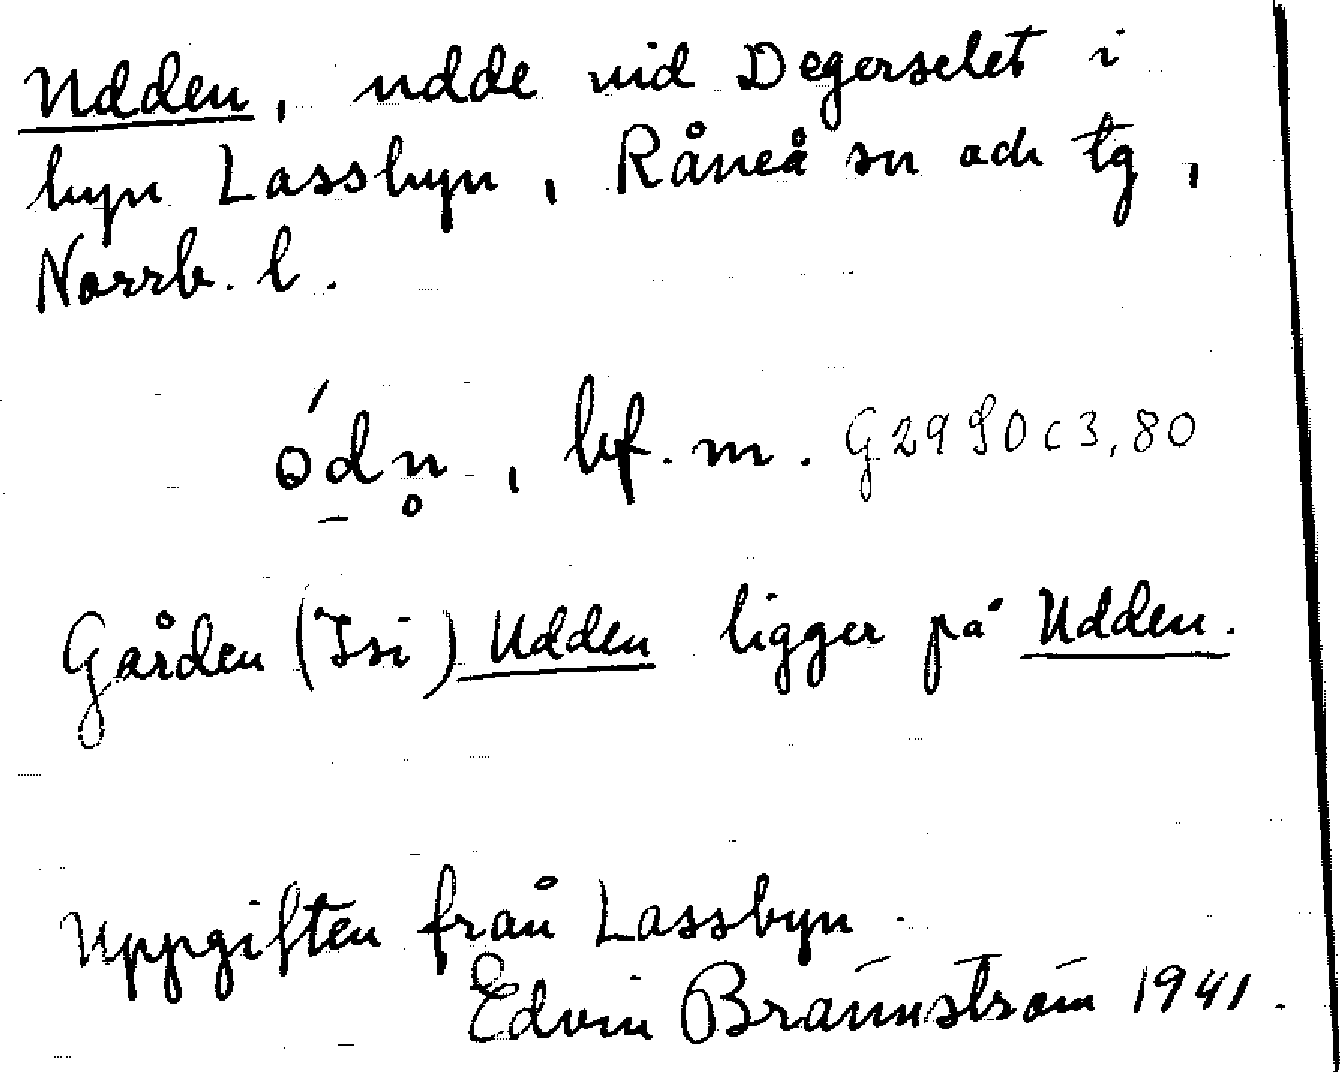 Udden, udde vid Degerselet i
byn Lassbyn, Råneå sn och tg,
Norrb. l.
ódn̥, bf. m. G2990c3,80
Gården (Isi) Udden ligger på Udden.
Uppgiften från Lassbyn.
Edvin Brännström 1941.